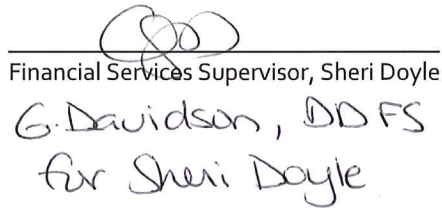 Financial Services Supervisor, Sheri Doyle
G. Davidson, DDFS
for Sheri Doyle